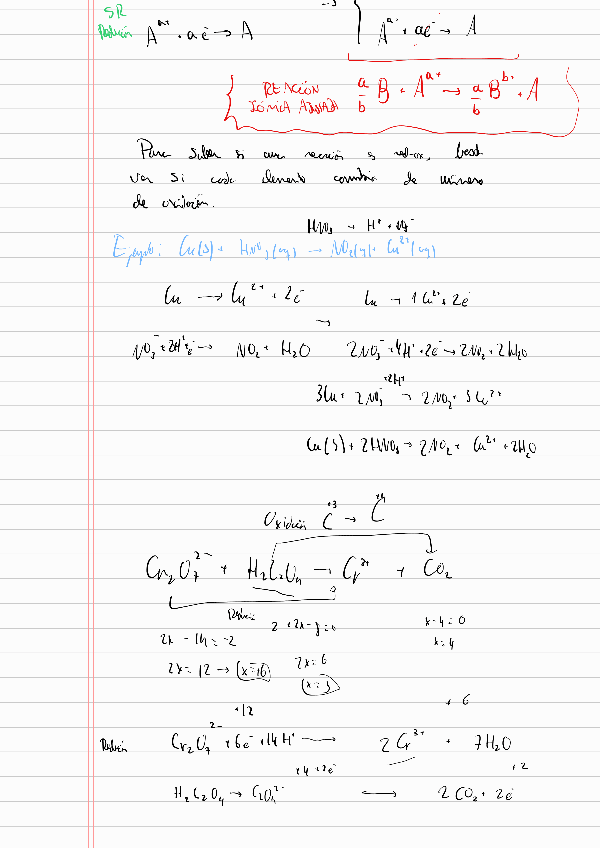 SR
Reducción Aᵃ⁺ + ae⁻ → A
Aᵃ⁺ + ae⁻ → A
REACCIÓN IÓNICA AJUSTADA a/b B + Aᵃ⁺ → a/b Bᵇ⁺ + A
Para saber si una reacción es red-ox, basta
ver si cada elemento cambia de número
de oxidación.
HNO₃ → H⁺ + NO₃⁻
Ejemplo: Cu(s) + HNO₃(aq) → NO₂(g) + Cu²⁺(aq)
Cu → Cu²⁺ + 2e⁻ Cu → 1Cu²⁺ + 2e⁻
→
NO₃⁻ + 2H⁺ + e⁻ → NO₂ + H₂O 2NO₃⁻ + 4H⁺ + 2e⁻ → 2NO₂ + 2H₂O
+2H⁺
3Cu + 2NO₃⁻ → 2NO₂ + 3Cu²⁺
Cu(s) + 2HNO₃ → 2NO₂ + Cu²⁺ + 2H₂O
+3 +4
Oxidación C → C
Cr₂O₇²⁻ + H₂C₂O₄ → Cr³⁺ + CO₂
Reducción
2 + 2x - 8 = 0 x - 4 = 0
2x - 14 = -2 x = 4
2x = 12 → x = +6 2x = 6
x = 3
+12 + 6
Reducción Cr₂O₇²⁻ + 6e⁻ + 14H⁺ → 2Cr³⁺ + 7H₂O
+2
H₂C₂O₄ → C₂O₄²⁻ ⟷ 2CO₂ + 2e⁻